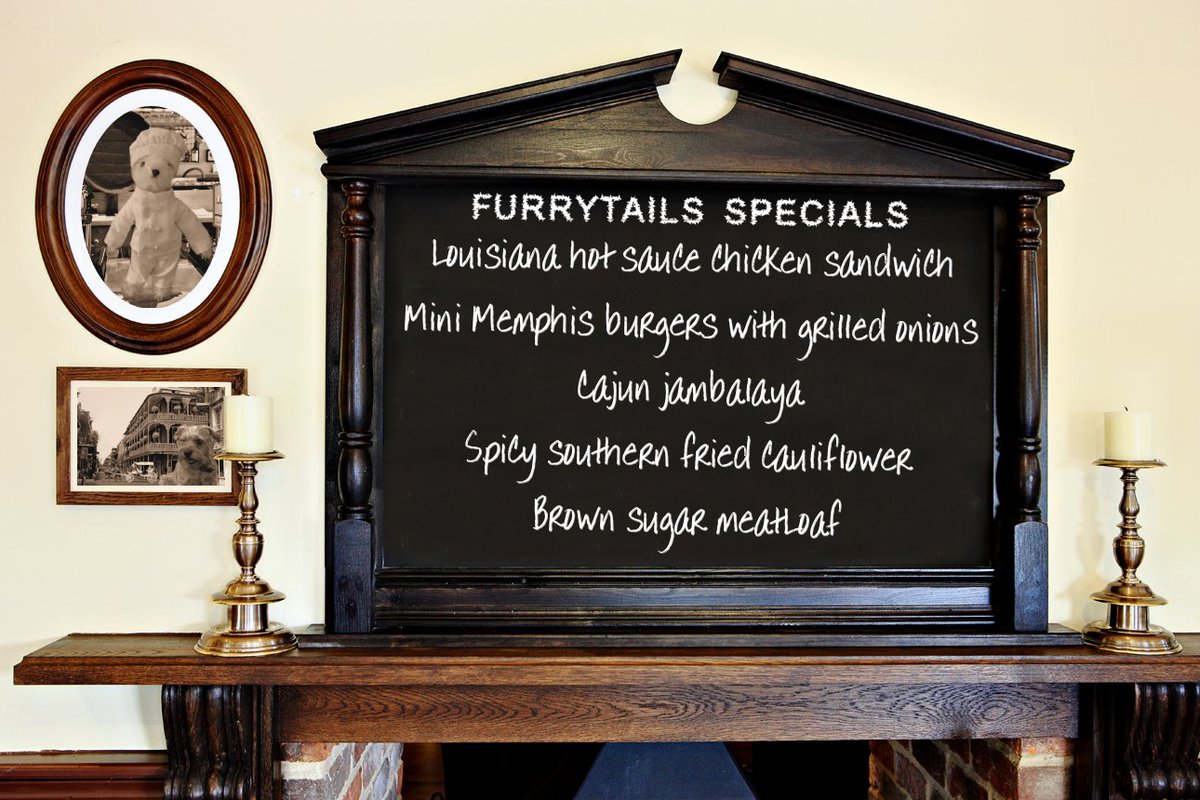 FURRYTAILS SPECIALS
Louisiana hot sauce chicken sandwich
Mini Memphis burgers with grilled onions
Cajun jambalaya
Spicy southern fried cauliflower
Brown sugar meatloaf